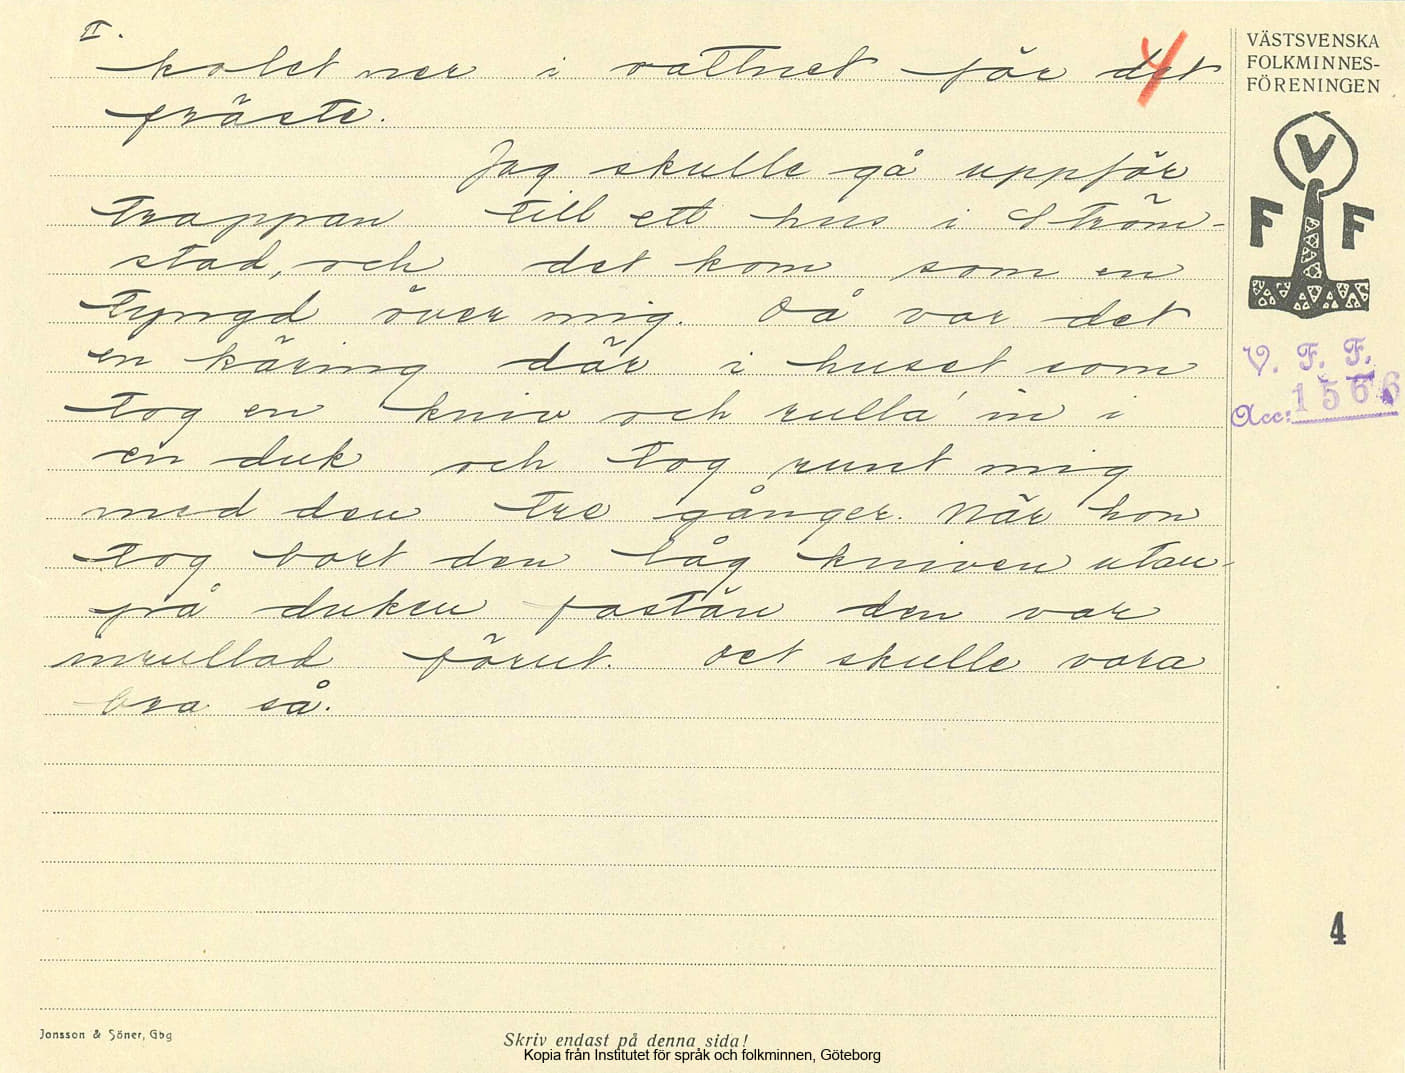 II.
kolet ner i vattnet får det
fräste.
Jag skulle gå uppför
trappan till ett hus i Ström-
stad, och det kom som en
tyngd över mig. Då var det
en käring där i huset som
tog en kniv och rulla' in i
en duk och tog runt mig
med den tre gånger. När hon
tog bort den låg kniven utan-
på duken fastän den var
inrullad förut. Det skulle vara
bra så.
4
VÄSTSVENSKA
FOLKMINNES-
FÖRENINGEN
V
F F
V. F. F.
Acc: 1566
4
Jonsson & Söner, Gbg
Skriv endast på denna sida!
Kopia från Institutet för språk och folkminnen, Göteborg